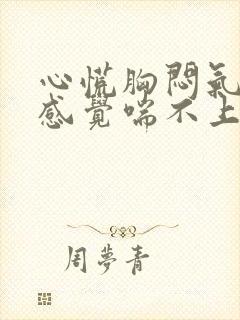 心慌胸悶氣
感覺喘不上
周夢青